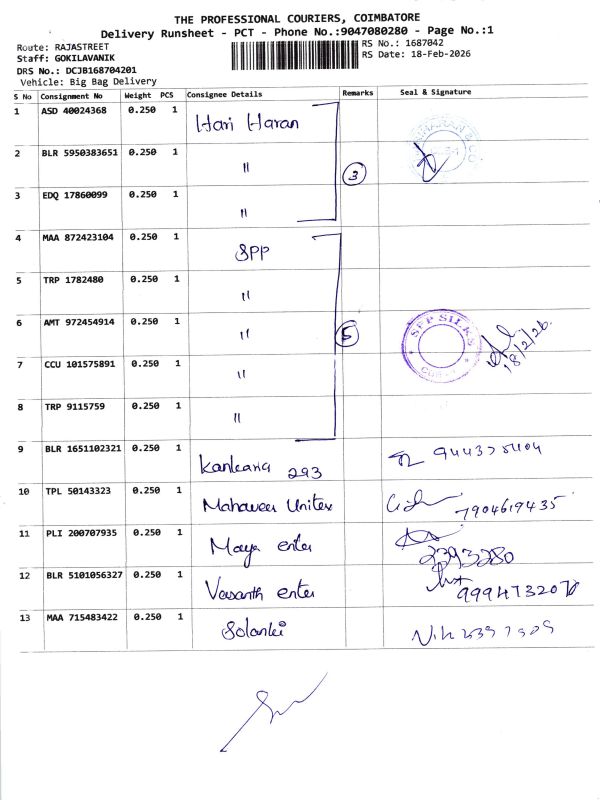 THE PROFESSIONAL COURIERS, COIMBATORE
Delivery Runsheet - PCT - Phone No.:9047080280 - Page No.:1
Route: RAJASTREET
Staff: GOKILAVANIK
DRS No.: DCJB168704201
Vehicle: Big Bag Delivery
RS No.: 1687042
RS Date: 18-Feb-2026
S No Consignment No Weight PCS Consignee Details Remarks Seal & Signature
1 ASD 40024368 0.250 1 Hari Haran
2 BLR 5950383651 0.250 1 " 3
3 EDQ 17860099 0.250 1 "
4 MAA 872423104 0.250 1 SPP
5 TRP 1782480 0.250 1 "
6 AMT 972454914 0.250 1 " 5 SPP SILKS 18/2/26
7 CCU 101575891 0.250 1 "
8 TRP 9115759 0.250 1 "
9 BLR 1651102321 0.250 1 293
10 TPL 50143323 0.250 1 Mahaveer 7904619435
11 PLI 200707935 0.250 1 Maya enter 2393280
12 BLR 5101056327 0.250 1 Vasanth enter
13 MAA 715483422 0.250 1 Solanki